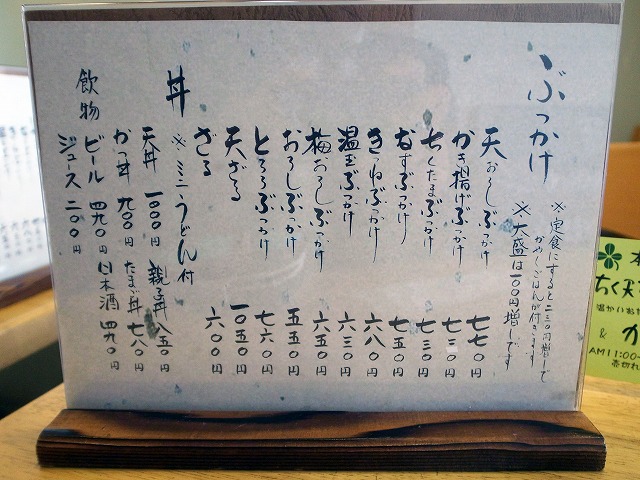 ぶっかけ
※定食にすると二三〇円増しで
かやくごはんが付きます
※大盛は一〇〇円増しです
天おろしぶっかけ 七七〇円
かき揚げぶっかけ 七三〇円
ちくたまぶっかけ 七三〇円
なすぶっかけ 七五〇円
きつねぶっかけ 六八〇円
温玉ぶっかけ 六三〇円
梅おろしぶっかけ 六五〇円
おろしぶっかけ 五五〇円
とろろぶっかけ 七六〇円
天ざる 一〇五〇円
ざる 六〇〇円
丼 ※ミニうどん付
天丼 一〇〇〇円 親子丼 八五〇円
かつ丼 九〇〇円 たまご丼 七八〇円
飲物
ビール 四九〇円 日本酒 四九〇円
ジュース 二〇〇円
ちく天
温かいお
&
か
AM11:00~
売切れ